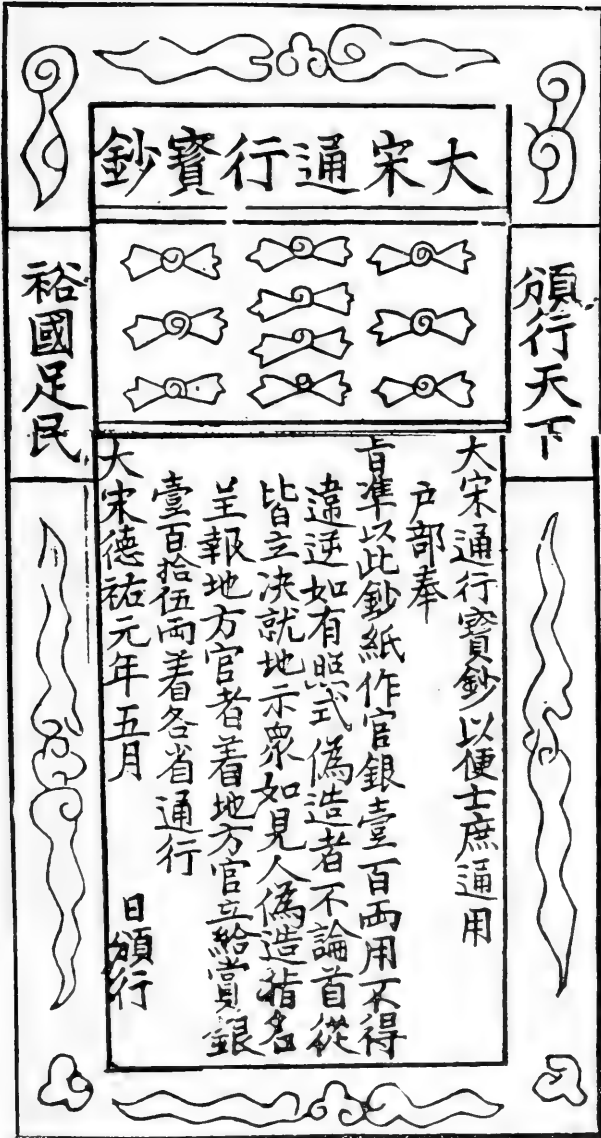 大宋通行寶鈔
頒行天下
裕國足民
大宋通行寶鈔以便士庶通用
戶部奉
旨準以此鈔紙作官銀壹百両用不得
違逆如有照式偽造者不論首從
皆立决就地示衆如見人偽造指名
呈報地方官者着地方官立給賞銀
壹百拾伍両着各省通行
大宋德祐元年五月 日頒行